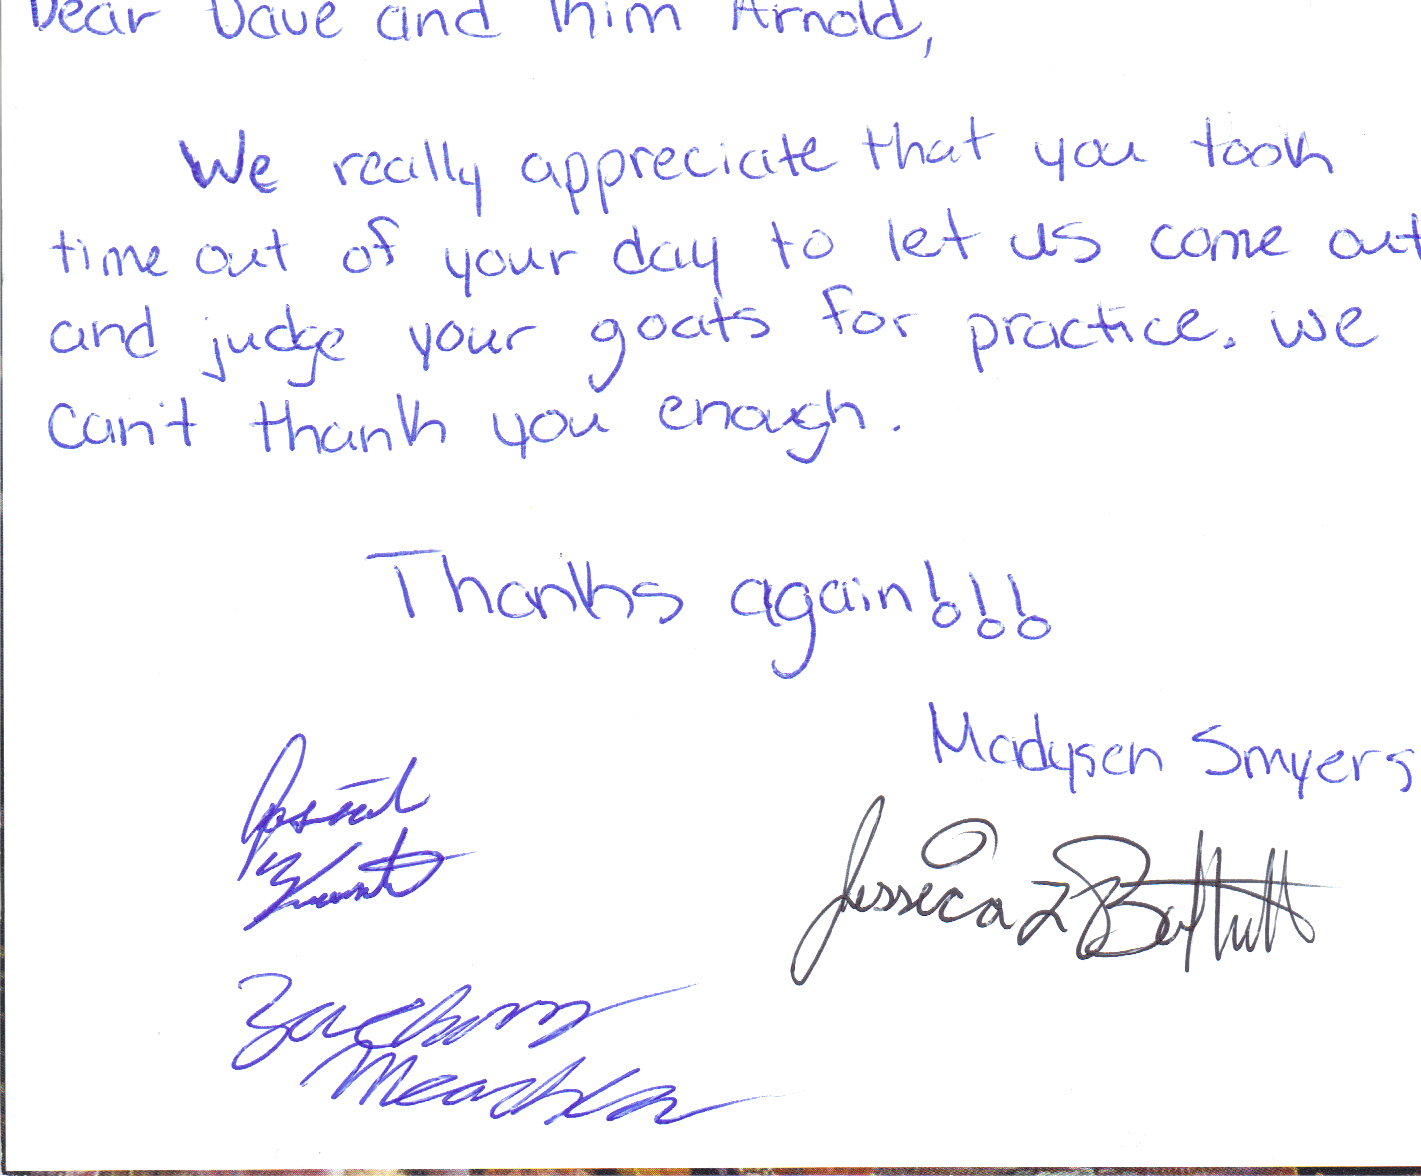 Dear Dave and Kim Arnold,
We really appreciate that you took
time out of your day to let us come out
and judge your goats for practice. We
can't thank you enough.
Thanks again!!!
Madysen Smyers
Jessica L